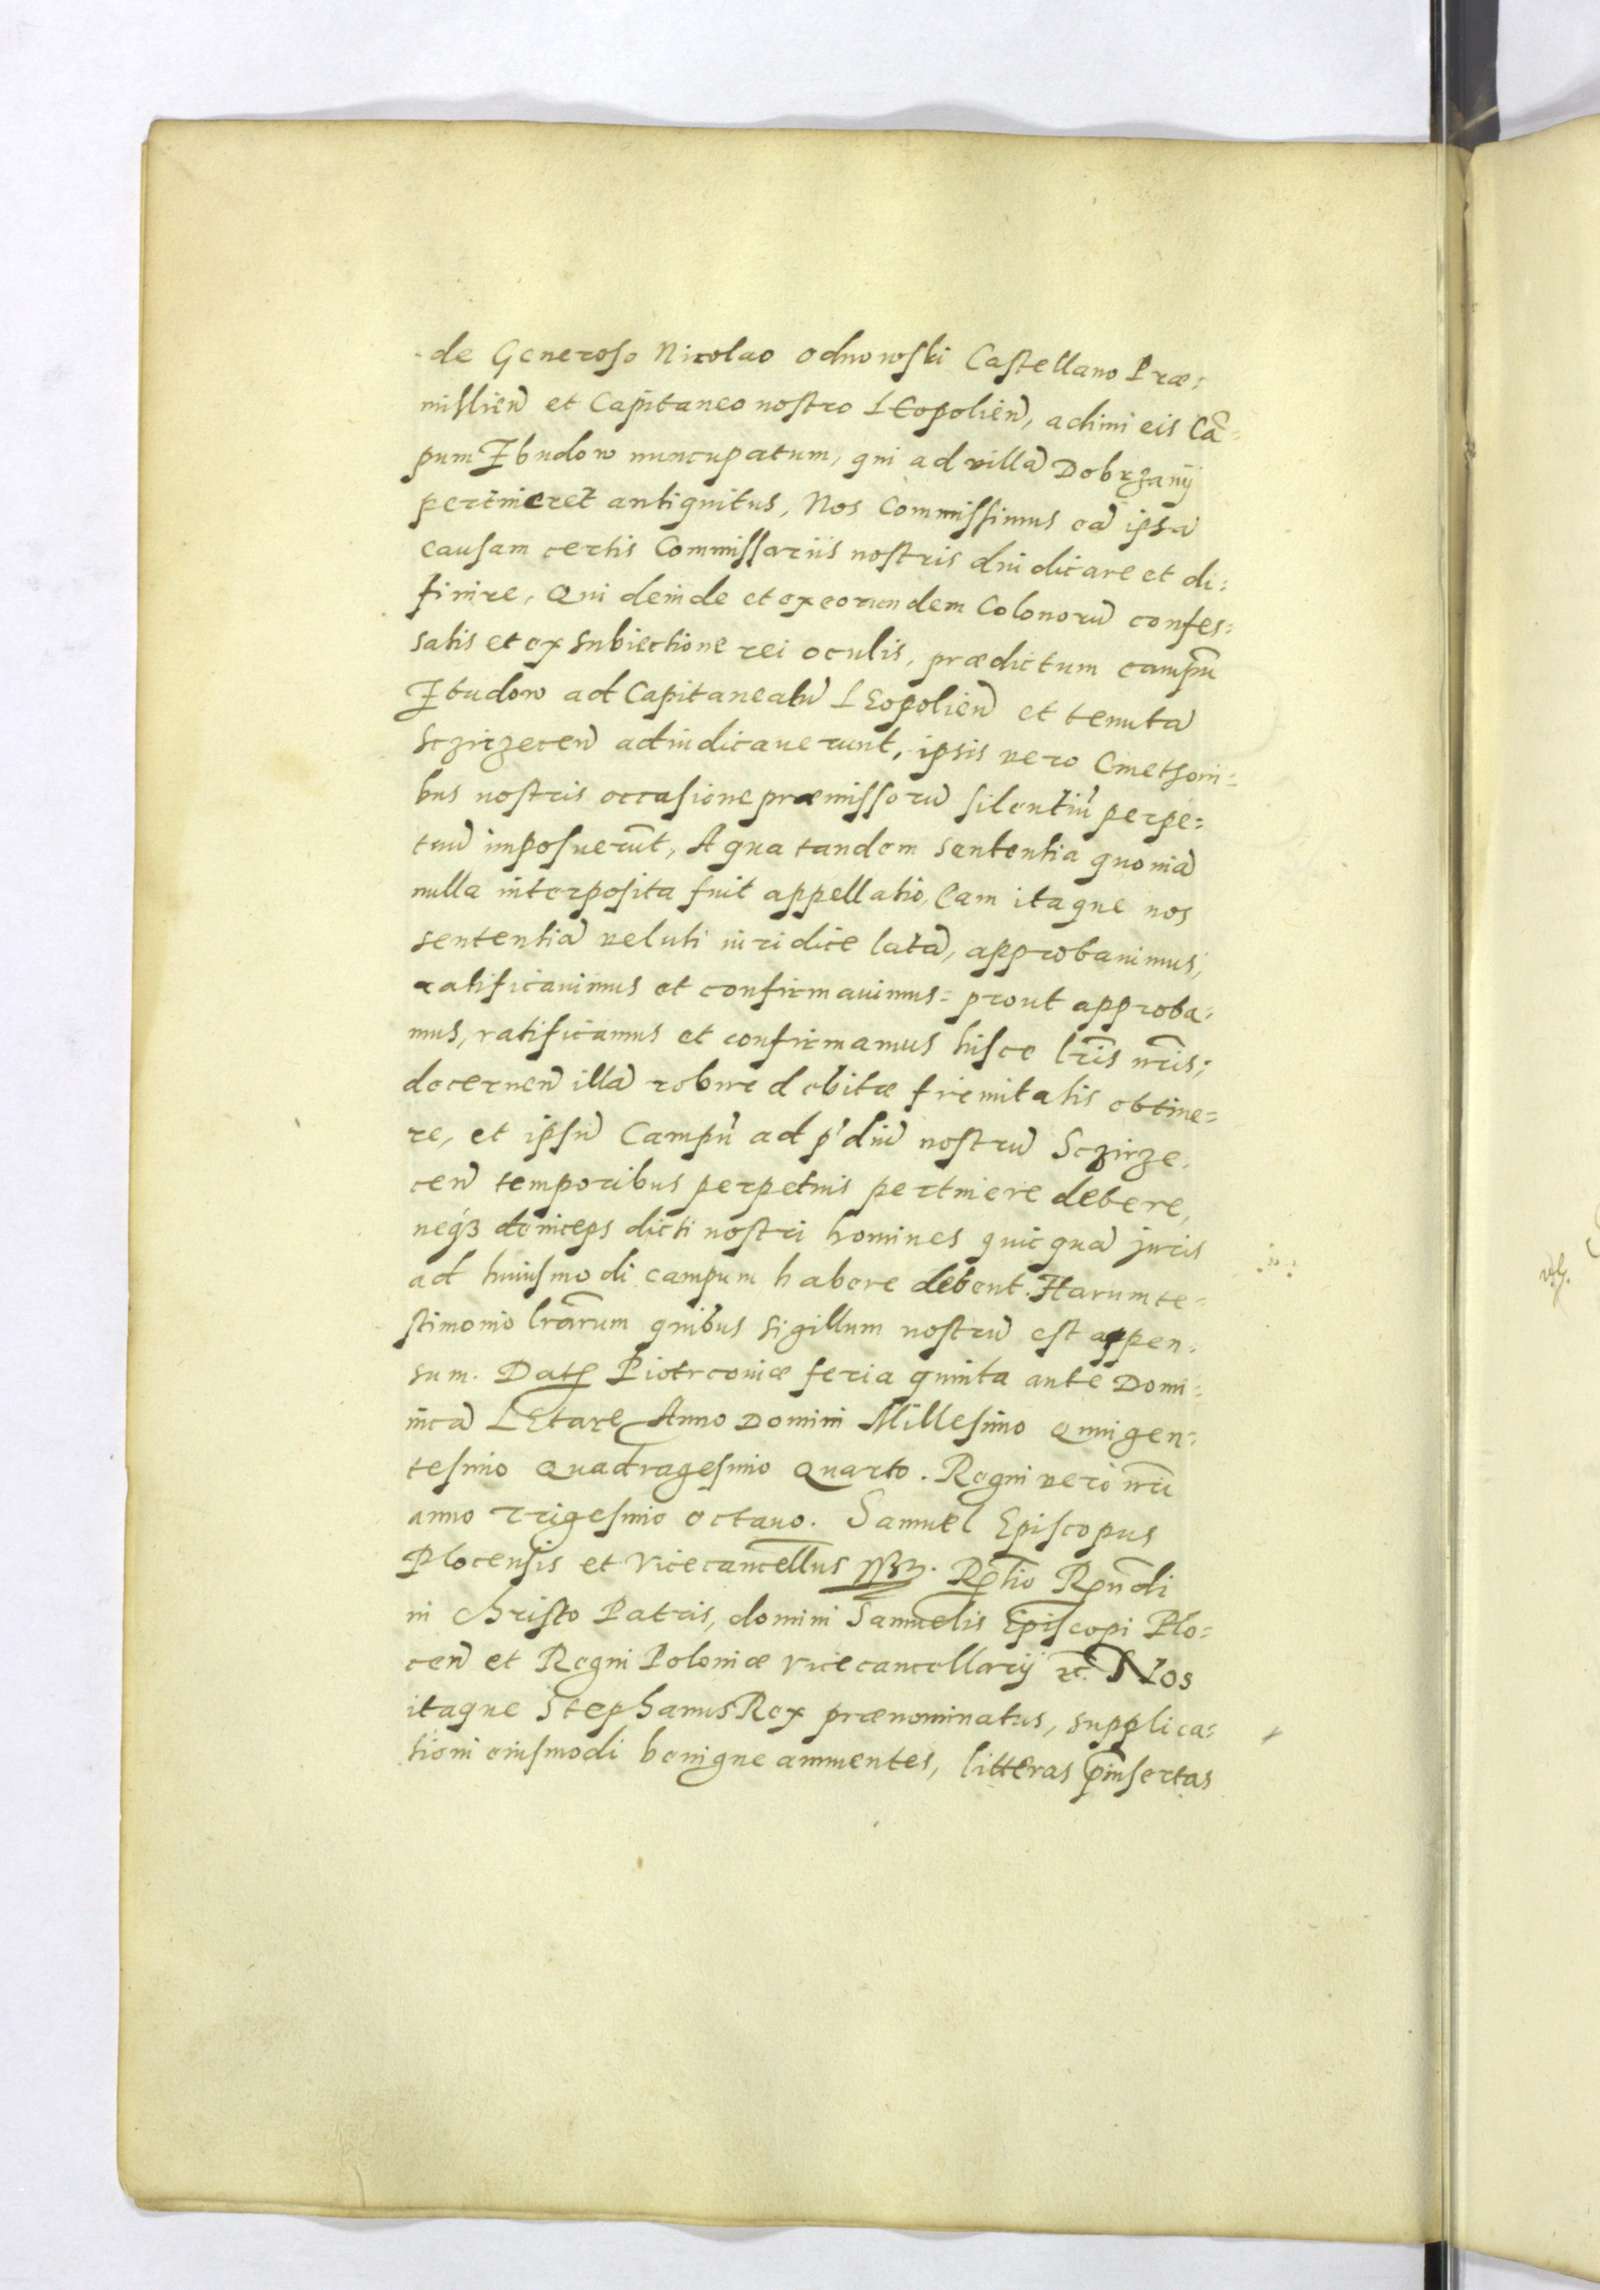 de Generoso Nicolao Odnowski Castellano Præ=
mislien̄ et Capitaneo nostro LEopolien̄, adimi eis Cā=
pum Zbudow nuncupatum, qui ad villā Dobrzanij
pertineret antiquitus, Nos Commissimus eā ipsā
causam certis Commissariis nostris diiudicare et di=
finire, Qui deinde et ex eorundem Colonorū confes=
satis et ex subiectione rei oculis, prædictum campū
Zbudow ad Capitaneatū LEopolien̄ et tenutā
Sczirzecen̄ adiudicauerunt, ipsis vero Cmethoni=
bus nostris occasione præmissorū silentiū perpe=
tuū imposuerūt, A qua tandem sententia quoniā
nulla interposita fuit appellatio, Eam itaque nos
sententiā veluti iuridice latā, approbauimus,
ratificauimus et confirmauimus= prout approba=
mus, ratificamus et confirmamus hisce lr̄is nr̄is;
decernen̄ illā robure debitæ firmitatis obtine=
re, et ipsū Campū ad p'diū nostrū Sczirze=
cen̄ temporibus perpetuis pertinere debere,
neqꝫ deinceps dicti nostri homines quicquā juris
ad huiusmodi campum habere debent. Harum te=
stimonio lr̄arum quibus sigillum nostrū est appen=
sum. Datꝭ Piotrcouiæ feria quinta ante Domi=
nicā LEtare Anno Domini Millesimo Quingen=
tesimo Quadragesimo Quarto. Regni vero nr̄i
anno Trigesimo octauo. Samuel Episcopus
Plocensis et Vicecancellus Rp̄tio Rn̄di
in Christo Patris, domini Samuelis Episcopi Plo=
cen̄ et Regni Poloniæ vicecancellarij etc. Nos
itaque Stephanus Rex prænominatus, supplica=
tioni eiusmodi benigne annuentes, litteras p̄insertas